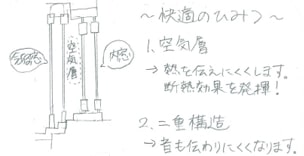 〜快適のひみつ〜
空気層
内窓
1. 空気層
→ 熱を伝えにくくします。
断熱効果を発揮!
2. 二重構造
→ 音も伝わりにくくなります。